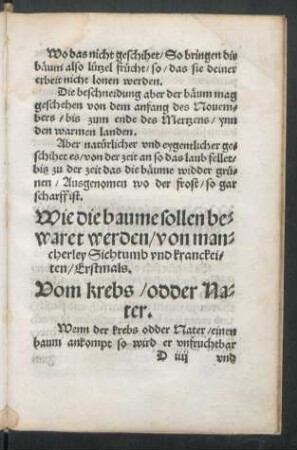 Wo das nicht geschihet/ So bringen dis
bäum also lützel frücht/ so/ das sie deiner
erbeit nicht lonen werden.
Die beschneidung aber der bäum mag
geschehen von dem anfang des Nouem-
bers/ bis zum ende des Mertzens/ ynn
den warmen landen.
Aber natürlicher vnd eygentlicher ge-
schihet es/ von der zeit an so das laub fellet/
bis zu der zeit das die bäume widder grü-
nen/ Ausgenomen wo der frost/ so gar
scharff ist.
Wie die baume sollen be-
waret werden/ von man-
cherley Siehtumb vnd kranckei-
ten/ Erstmals.
Vom krebs/ odder Na-
ter.
Wenn der krebs odder Nater/ einen
baum ankompt so wird er vnfruchtbar
D iiij vnd